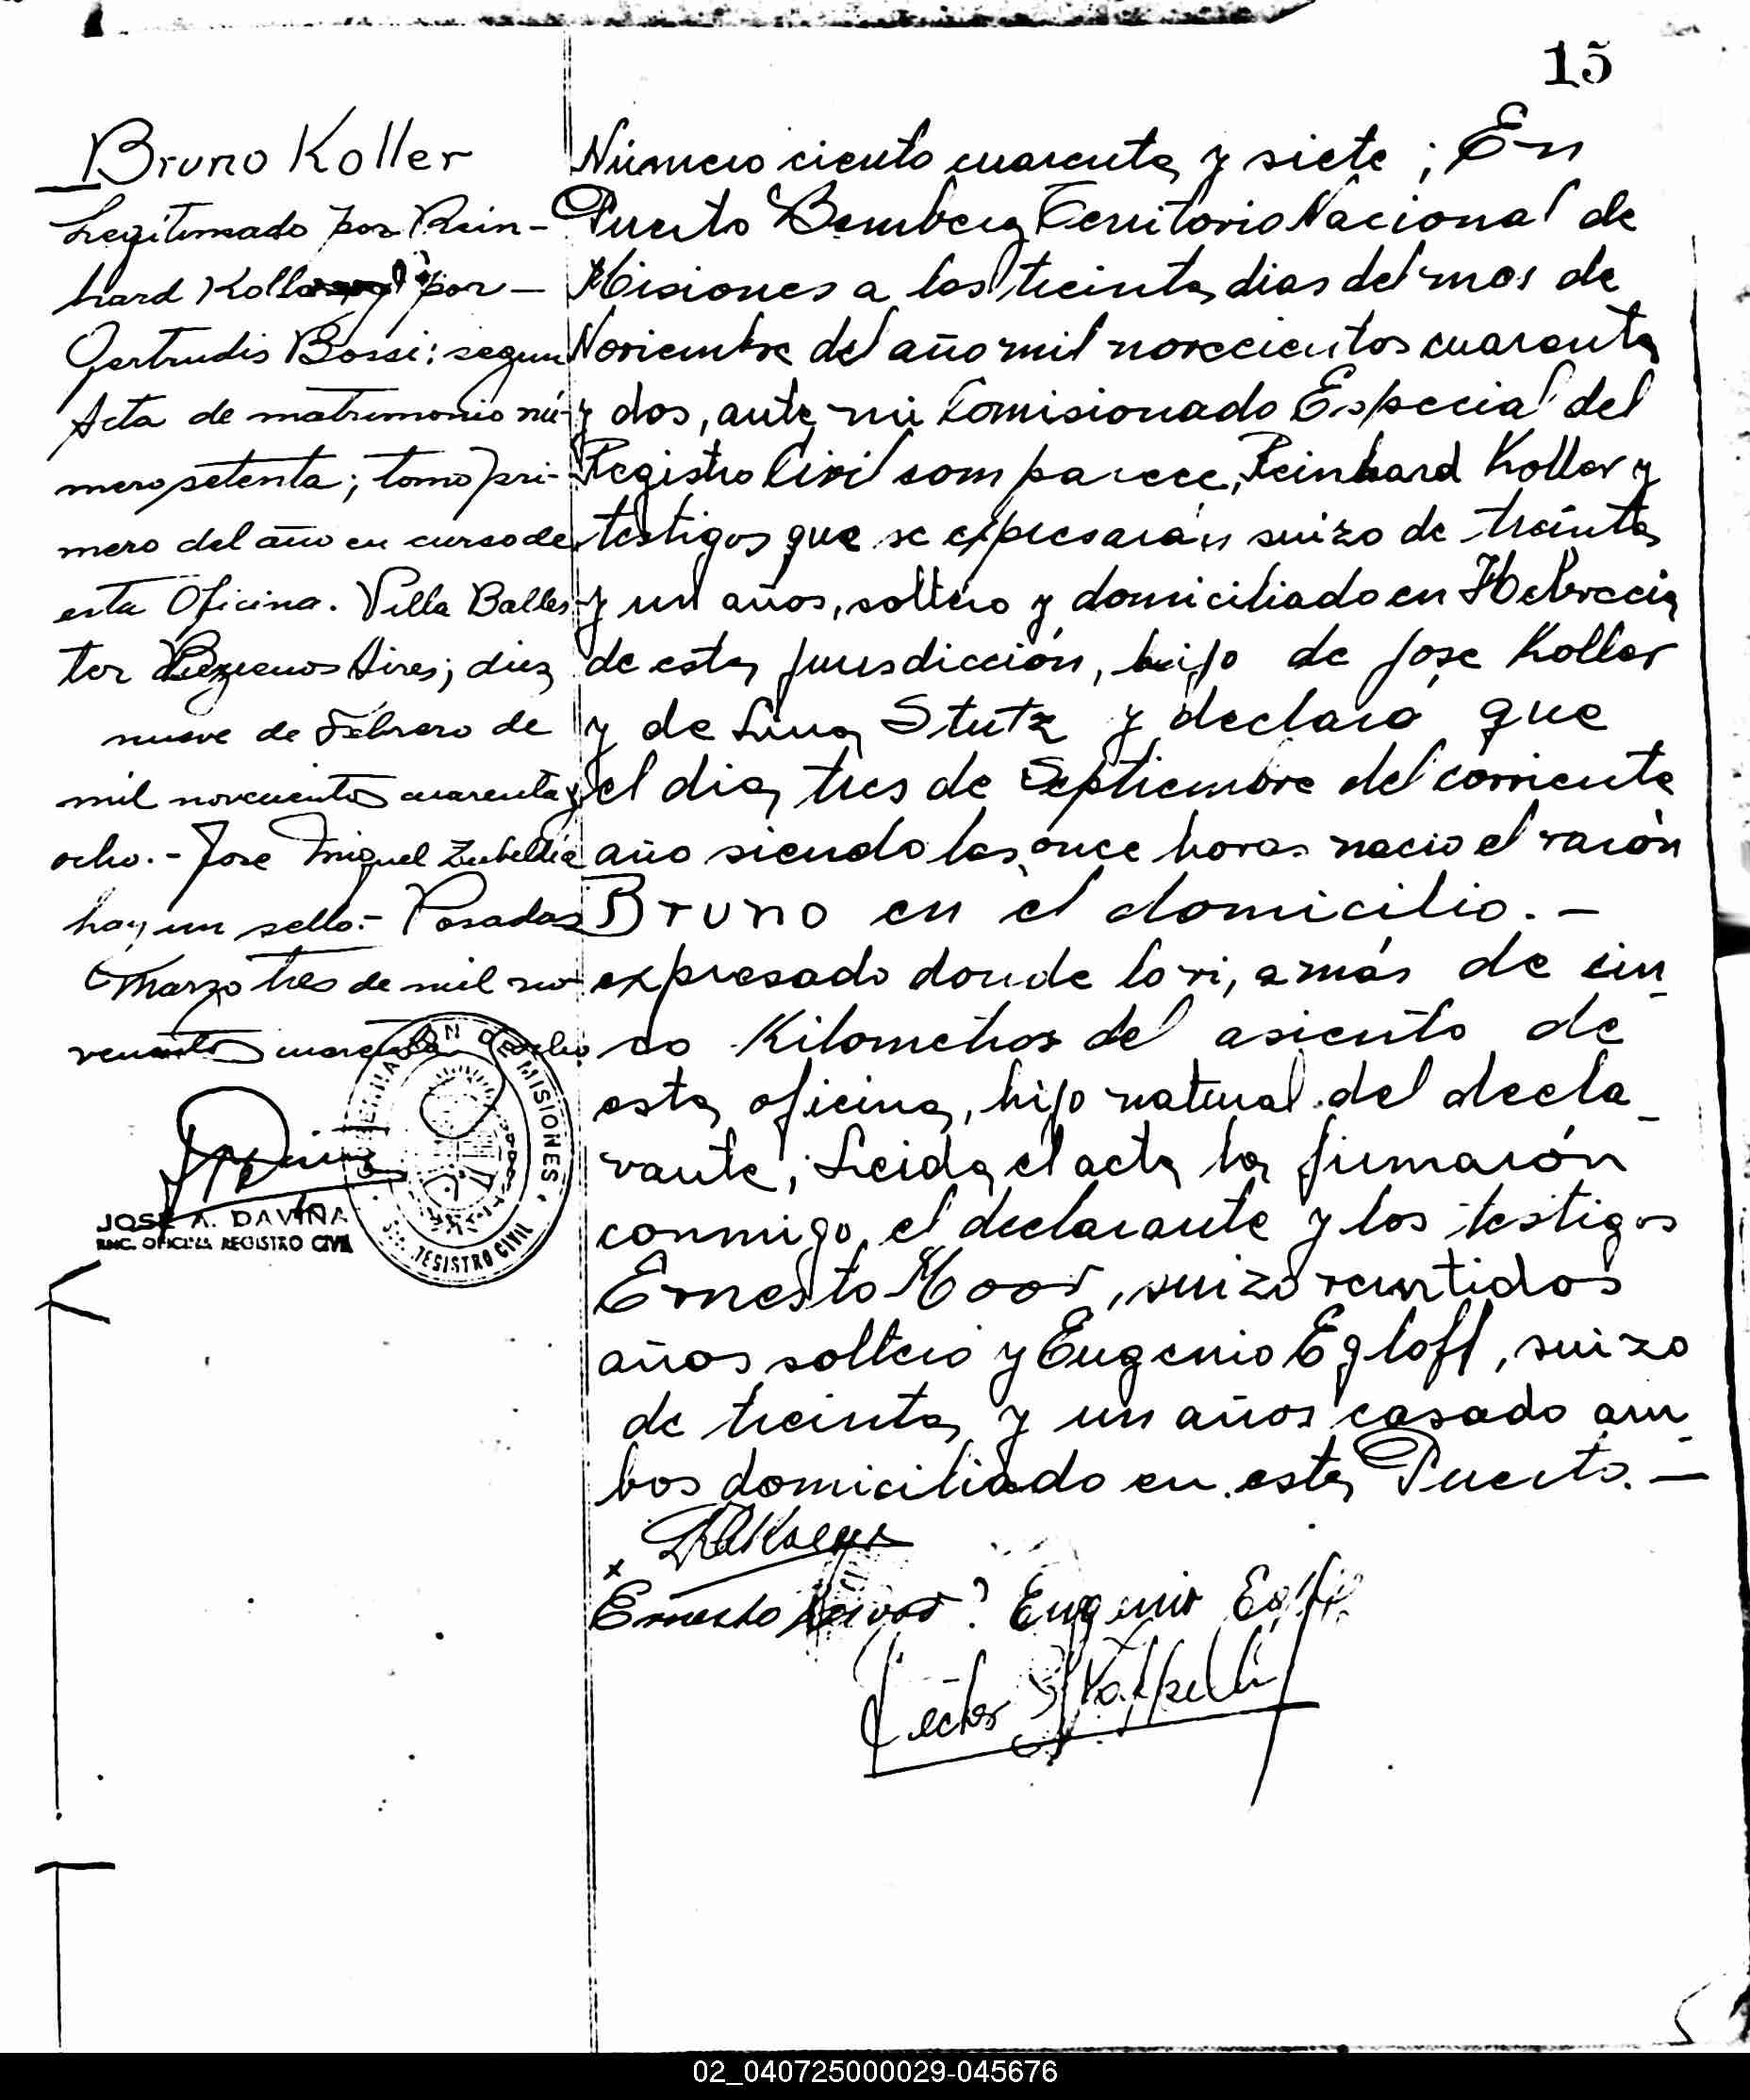 15
Bruno Koller
Legitimado por Rein-
hard Koller y por -
Gertrudis Bossi; segun
Acta de matrimonio nú-
mero setenta; tomo pri-
mero del año en curso de
esta Oficina. Villa Balles-
ter Buenos Aires; diez
nueve de Febrero de
mil novecientos cuarenta y
ocho.- Jose Miguel Zubeldia
hay un sello.- Posadas
Marzo tres de mil no-
vecientos cuarenta y ocho
GOBERNACION DE MISIONES
REGISTRO CIVIL
JOSE A. DAVIÑA
ENC. OFICINA REGISTRO CIVIL
Número ciento cuarenta y siete; En
Puerto Bemberg Territorio Nacional de
Misiones a los treinta dias del mes de
Noviembre del año mil novecientos cuarenta
y dos, ante mi Comisionado Especial del
Registro Civil comparece, Reinhard Koller y
testigos que se expresarán suizo de treinta
y un años, soltero y domiciliado en Helvecia
de esta jurisdicción, hijo de Jose Koller
y de Lina Stutz y declaró que
el dia tres de Septiembre del corriente
año siendo las once horas nacio el varón
Bruno en el domicilio. -
expresado donde lo vi, a más de cin_
co Kilometros del asiento de
esta oficina, hijo natural del decla_
rante; Leida el acta la firmarón
conmigo el declarante y los testigos
Ernesto Moor, suizo veintidos
años soltero y Eugenio Egloff, suizo
de treinta y un años casado am_
bos domiciliado en este Puerto. -
x
Ernesto Eugenio Egloff
02_040725000029-045676